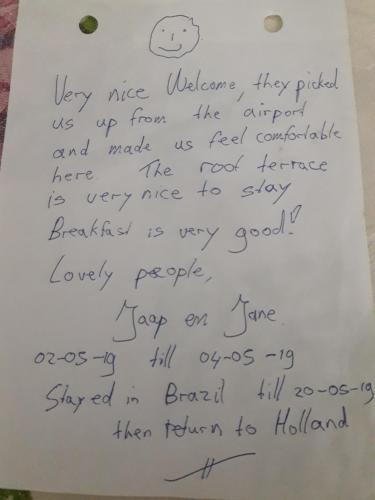 Very nice Welcome, they picked
us up from the airport
and made us feel comfortable
here. The roof terrace
is very nice to stay
Breakfast is very good!
Lovely people,
Jaap en Jane.
02-05-19 till 04-05-19
Stayed in Brazil till 20-05-19
then return to Holland